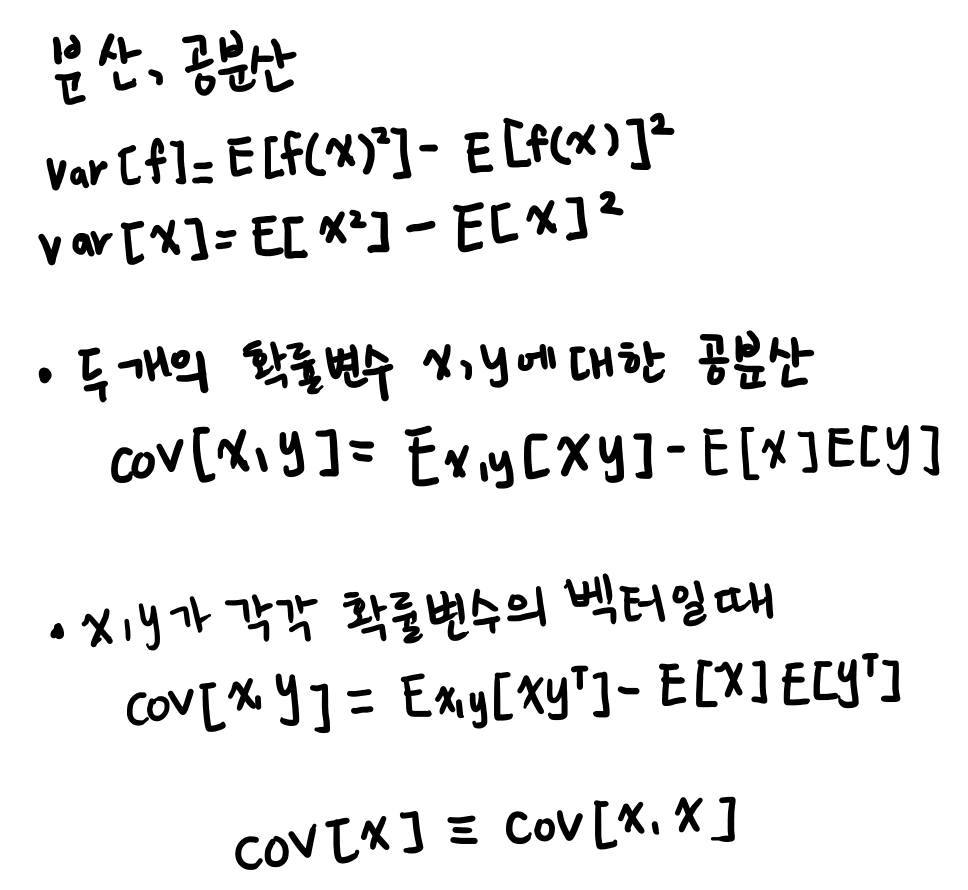 분산, 공분산
var[f]= E[f(x)²]- E[f(x)]²
var[x]= E[x²] - E[x]²
• 두개의 확률변수 x,y에 대한 공분산
cov[x,y]= Ex,y[xy]-E[x]E[y]
• x,y가 각각 확률변수의 벡터일때
cov[x,y] = Ex,y[xyᵀ]- E[x]E[yᵀ]
cov[x] ≡ cov[x,x]